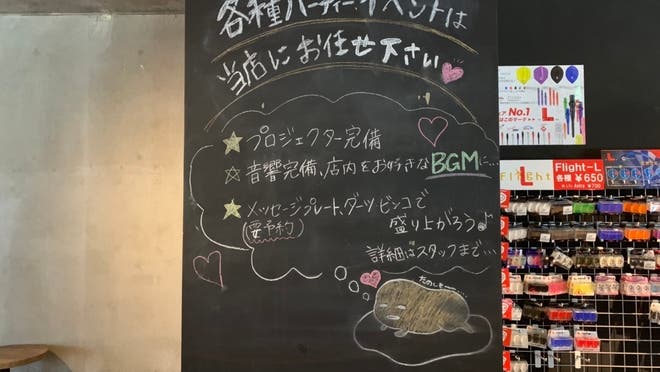 各種パーティーイベントは
当店にお任せ下さい
プロジェクター完備
音響完備、店内をお好きなBGMに…
メッセージプレート、ダーツビンゴで
(要予約)
盛り上がろう♪
詳細はスタッフまで…
たのしそー
No.1
L
Flight-L
各種 ¥650
Flight